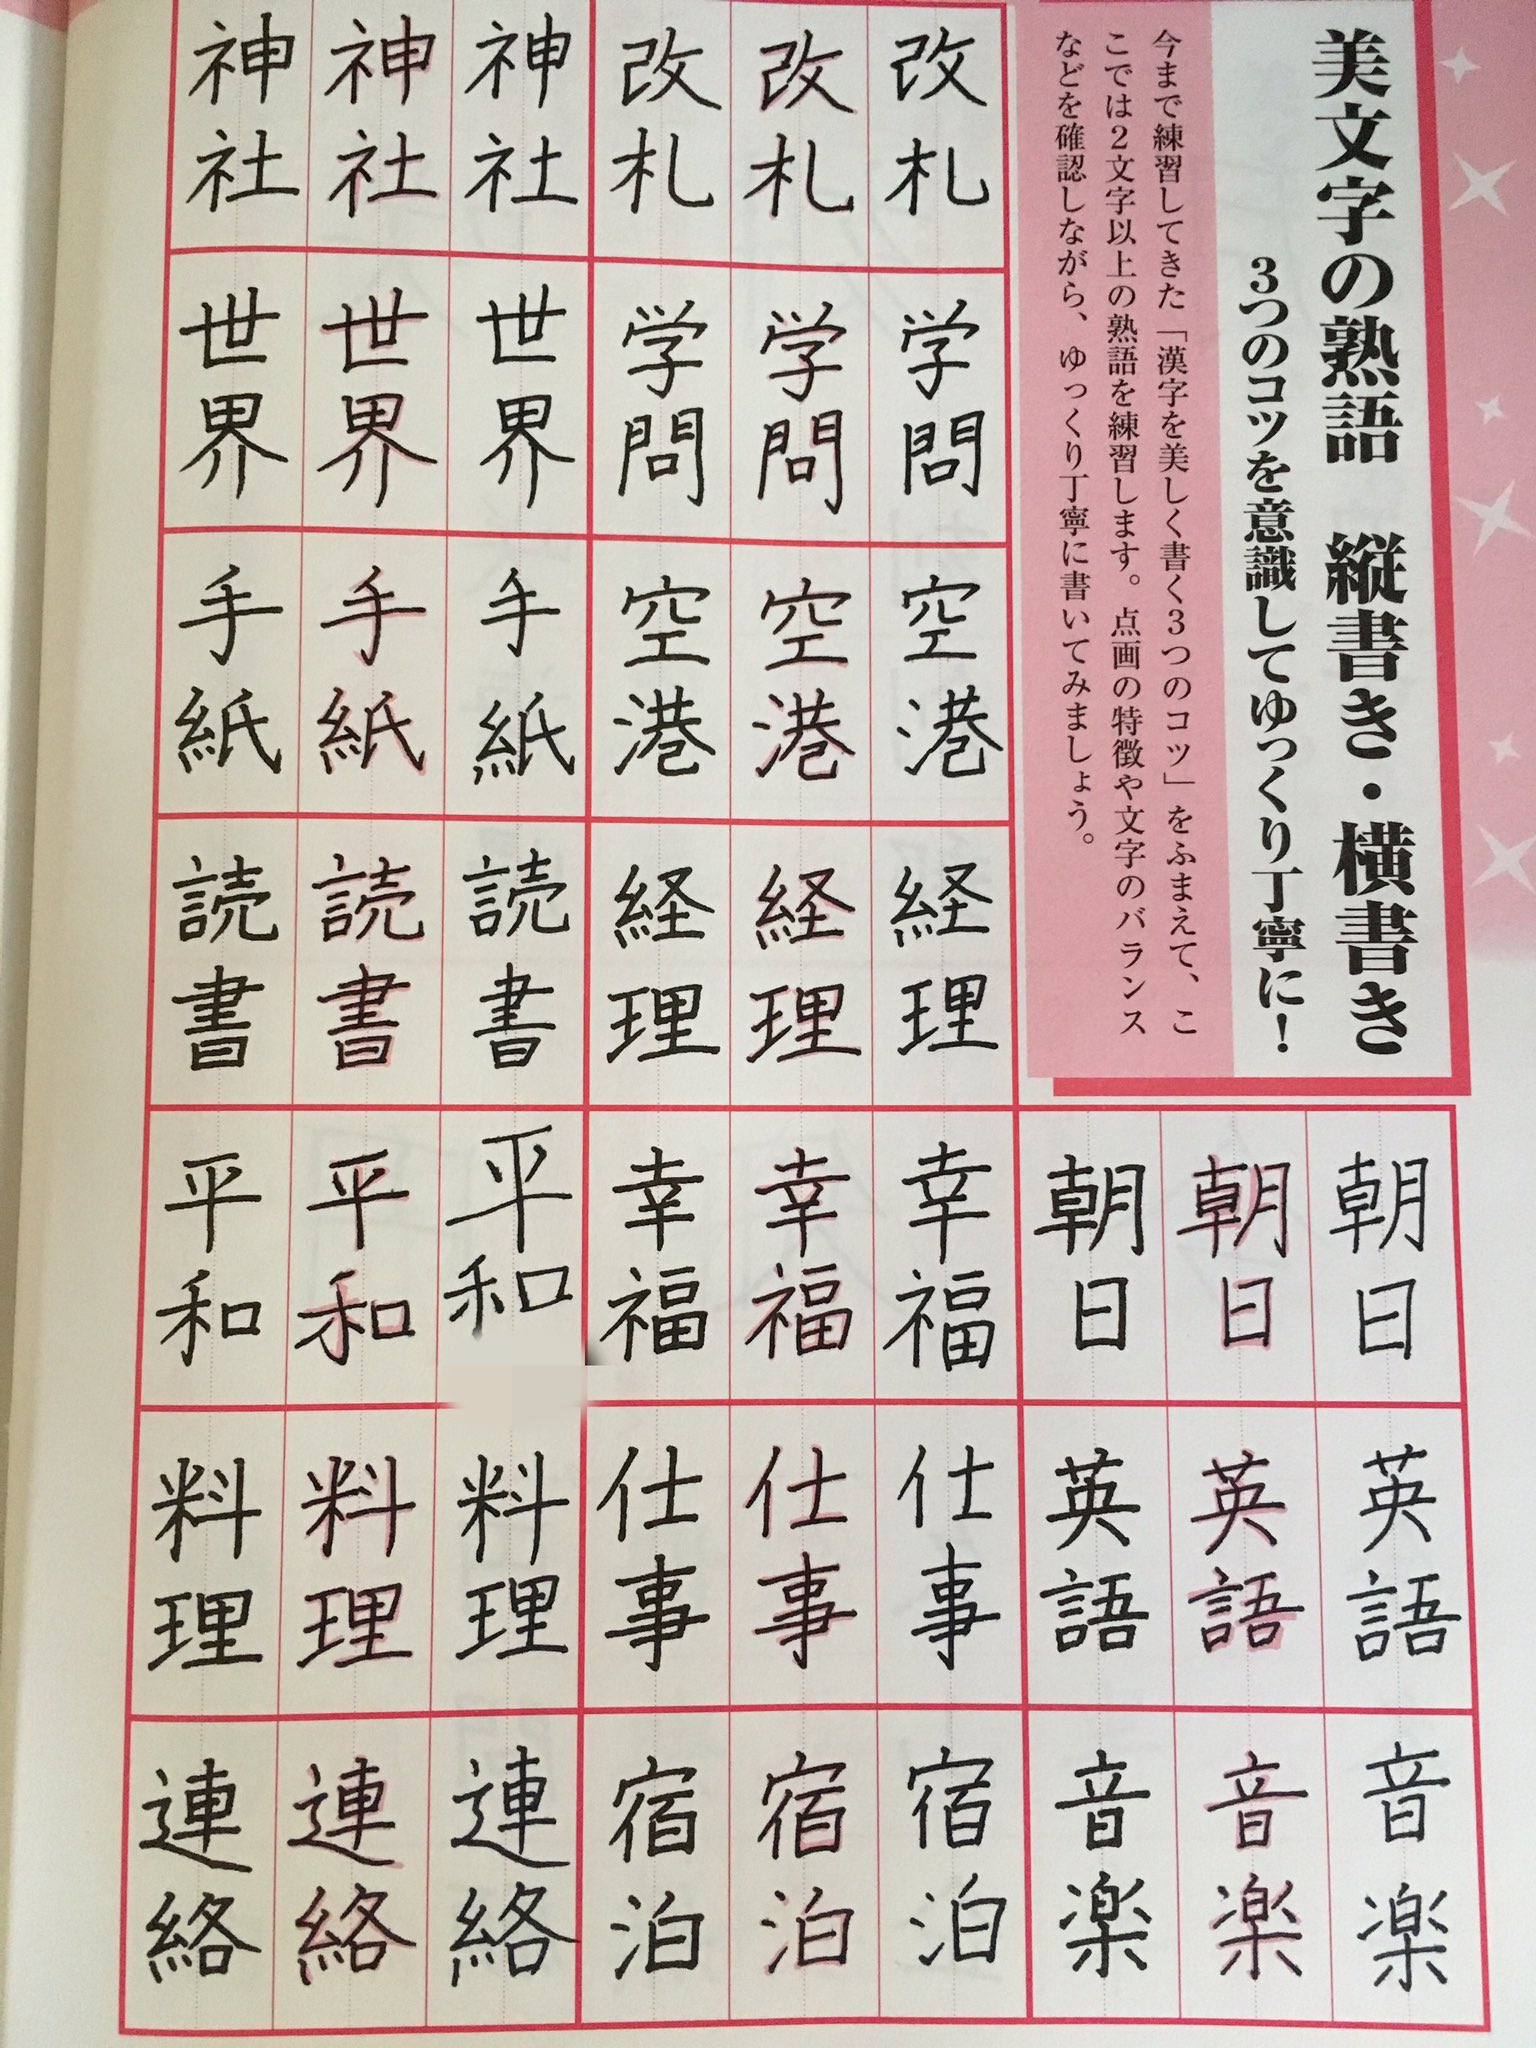 美文字の熟語 縦書き・横書き
3つのコツを意識してゆっくり丁寧に!
今まで練習してきた「漢字を美しく書く3つのコツ」をふまえて、こ
こでは2文字以上の熟語を練習します。点画の特徴や文字のバランス
などを確認しながら、ゆっくり丁寧に書いてみましょう。
朝日 英語 音楽
朝日 英語 音楽
朝日 英語 音楽
改札 学問 空港 経理 幸福 仕事 宿泊
改札 学問 空港 経理 幸福 仕事 宿泊
改札 学問 空港 経理 幸福 仕事 宿泊
神社 世界 手紙 読書 平和 料理 連絡
神社 世界 手紙 読書 平和 料理 連絡
神社 世界 手紙 読書 平和 料理 連絡